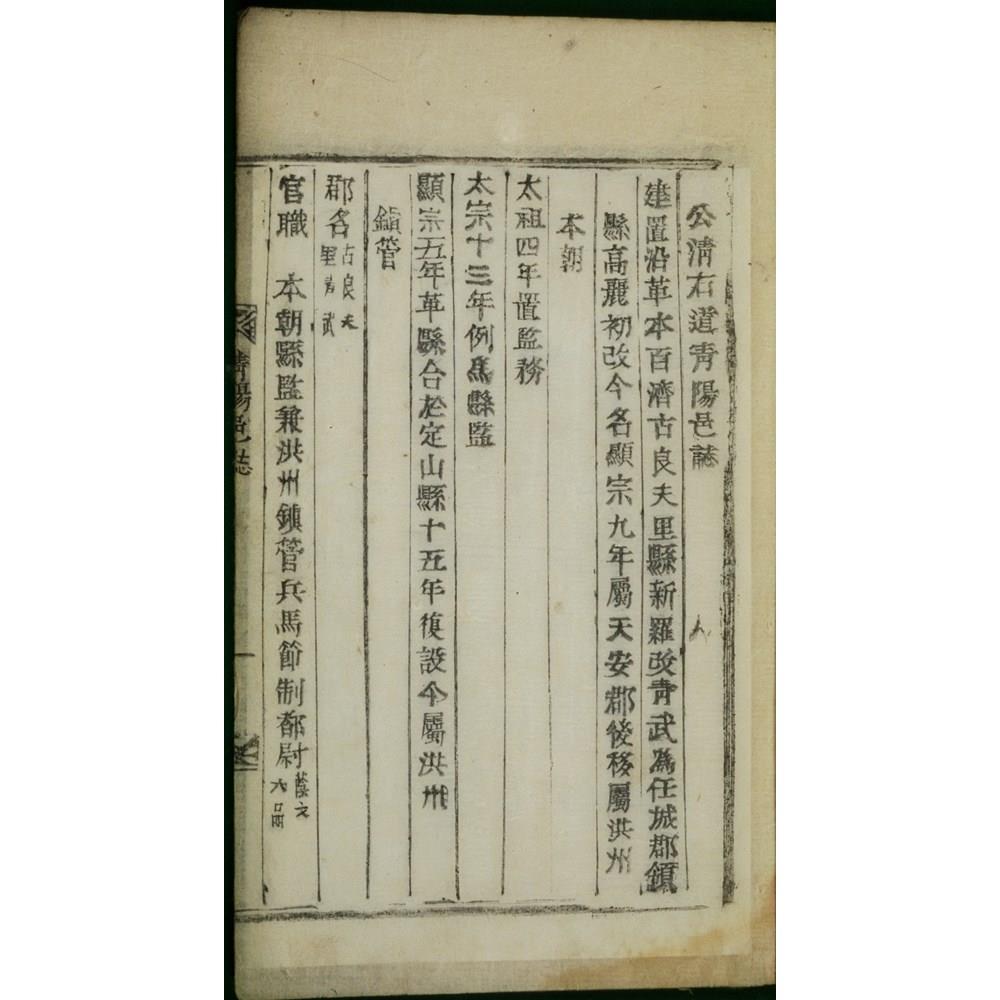 公淸右道靑陽邑誌
建置沿革本百濟古良夫里縣新羅改靑武爲任城郡領
縣高麗初改今名顯宗九年屬天安郡後移屬洪州
本朝
太祖四年置監務
太宗十三年例爲縣監
顯宗五年革縣合於定山縣十五年復設今屬洪州
鎭管
郡名 古良夫里靑武
官職 本朝縣監兼洪州鎭管兵馬節制都尉 蔭文六品
靑陽邑誌 一